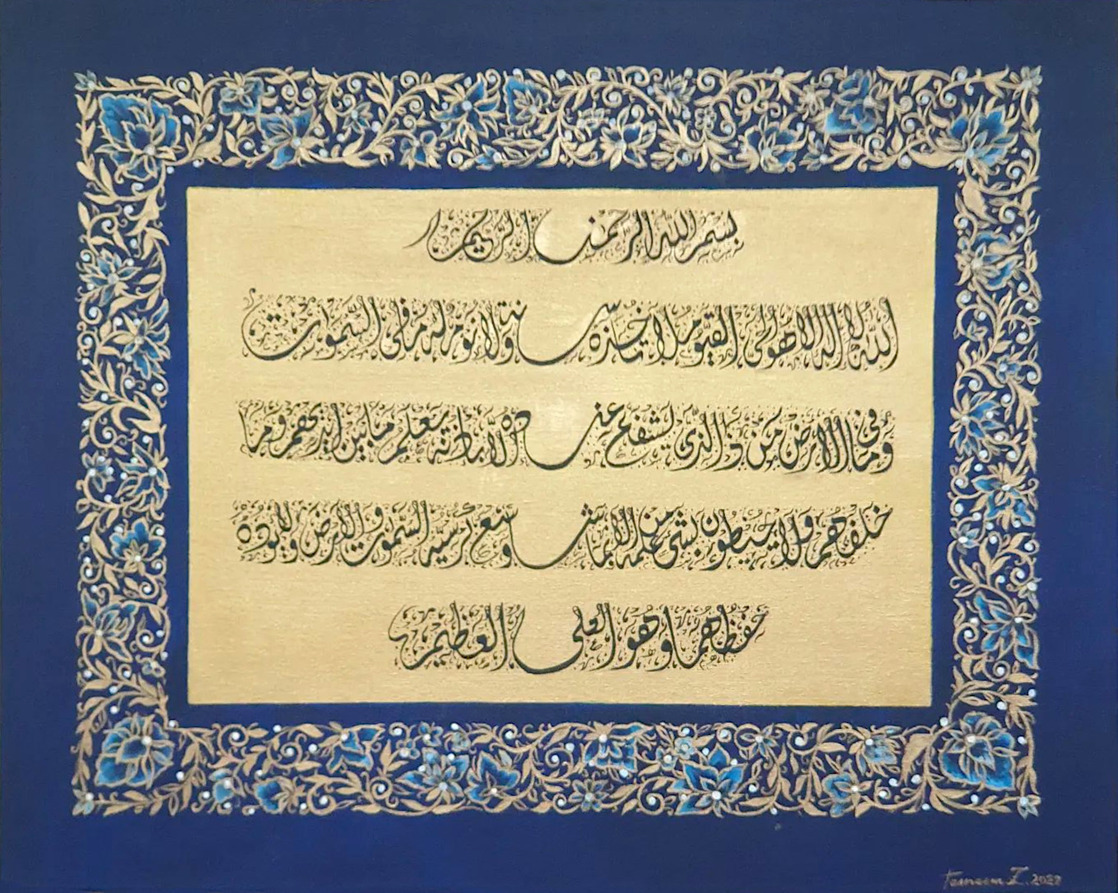 بسم الله الرحمن الرحيم
الله لا إله إلا هو الحي القيوم لا تأخذه سنة ولا نوم له ما في السموات
وما في الأرض من ذا الذي يشفع عنده إلا بإذنه يعلم ما بين أيديهم وما
خلفهم ولا يحيطون بشيء من علمه إلا بما شاء وسع كرسيه السموات والأرض ولا يؤده
حفظهما وهو العلي العظيم
2022